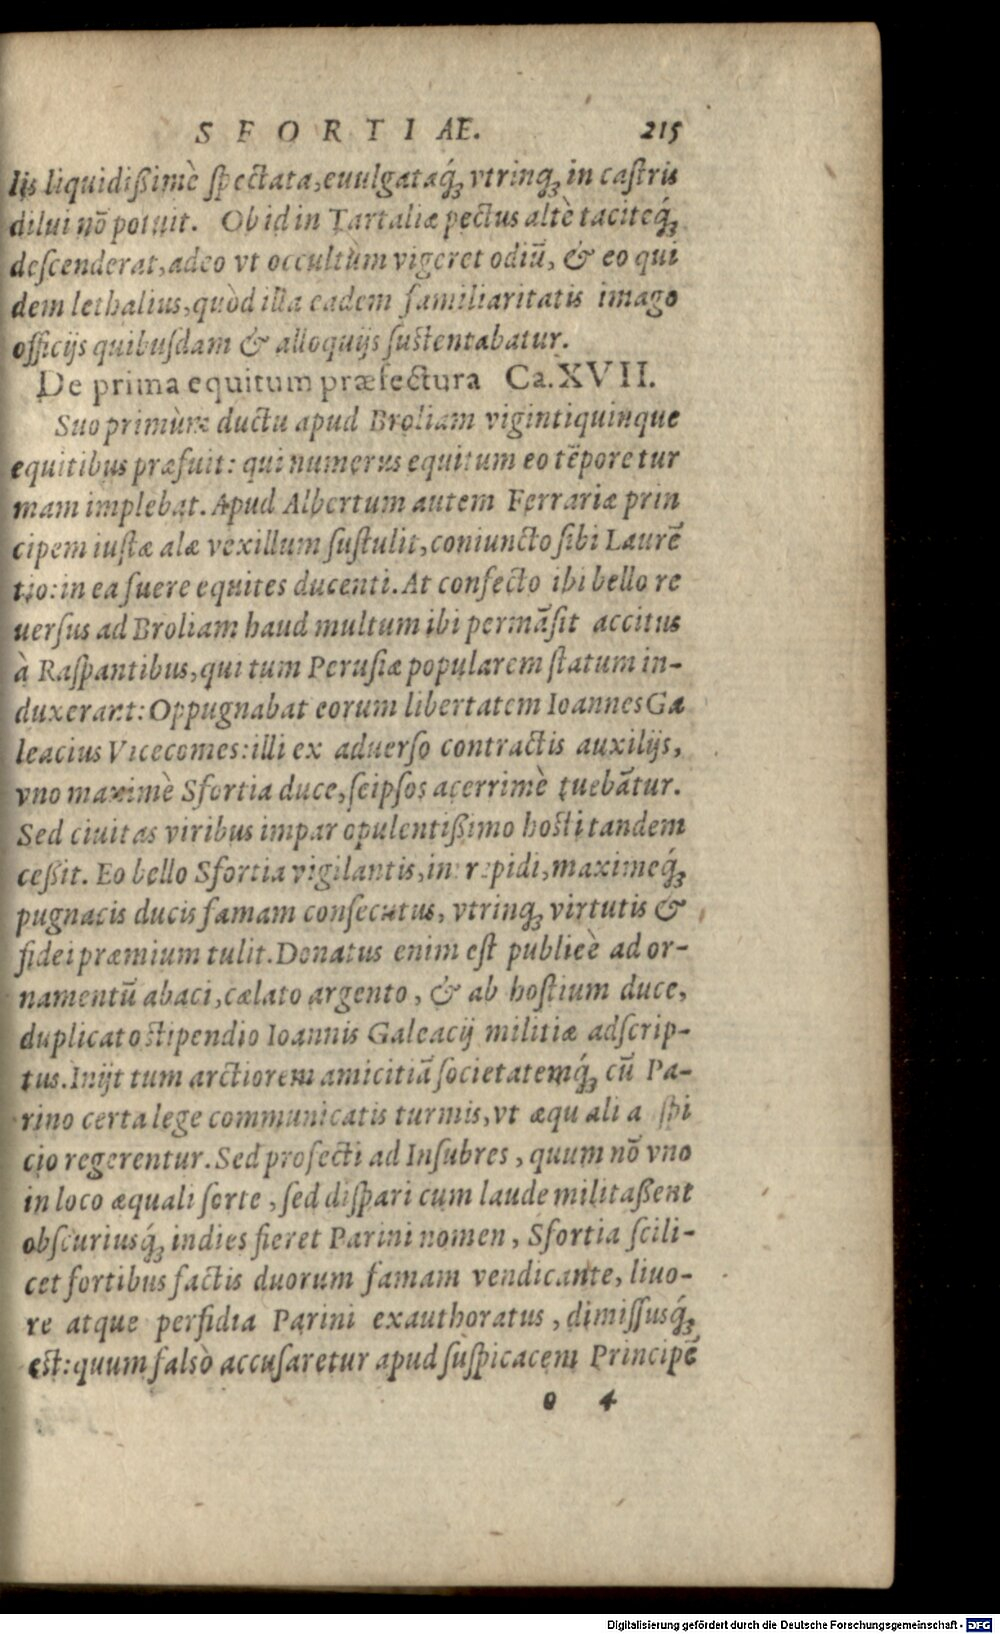 SFORTIAE. 215
lis liquidißimè ſpectata, euulgataq́ꝫ vtrinqꝫ in caſtris
dilui nõ potuit. Ob id in Tartaliæ pectus altè taciteq́ꝫ
deſcenderat, adeo vt occultùm vigeret odiũ, & eo qui
dem lethalius, quòd illa eadem familiaritatis imago
officijs quibuſdam & alloquijs ſuſtentabatur.
De prima equitum præfectura Ca. XVII.
Suo primùm ductu apud Broliam vigintiquinque
equitibus præfuit: qui numerus equitum eo tẽpore tur
mam implebat. Apud Albertum autem Ferrariæ prin
cipem iuſtæ alæ vexillum ſuſtulit, coniuncto ſibi Laurẽ
tio: in ea fuere equites ducenti. At confecto ibi bello re
uerſus ad Broliam haud multum ibi permãſit accitus
à Raſpantibus, qui tum Peruſiæ popularem ſtatum in-
duxerant: Oppugnabat eorum libertatem Ioannes Ga
leacius Vicecomes: illi ex aduerſo contractis auxilijs,
vno maximè Sfortia duce, ſeipſos acerrimè tuebãtur.
Sed ciuitas viribus impar opulentißimo hoſti tandem
ceßit. Eo bello Sfortia vigilantis, intrepidi, maximeq́ꝫ
pugnacis ducis famam conſecutus, vtrinqꝫ virtutis &
fidei præmium tulit. Donatus enim eſt publicè ad or-
namentũ abaci, cælato argento, & ab hoſtium duce,
duplicato ſtipendio Ioannis Galeacij militiæ adſcrip-
tus. Inijt tum arctiorem amicitiã ſocietatemq́ꝫ cũ Pa-
rino certa lege communicatis turmis, vt æquali a ſpi
cio regerentur. Sed profecti ad Inſubres, quum nõ vno
in loco æquali ſorte, ſed diſpari cum laude militaßent
obſcuriusq́ꝫ indies fieret Parini nomen, Sfortia ſcili-
cet fortibus factis duorum famam vendicante, liuo-
re atque perfidia Parini exauthoratus, dimiſſusq́ꝫ
eſt: quum falsò accuſaretur apud ſuſpicacem Principẽ
o 4
Digitalisierung gefördert durch die Deutsche Forschungsgemeinschaft - DFG